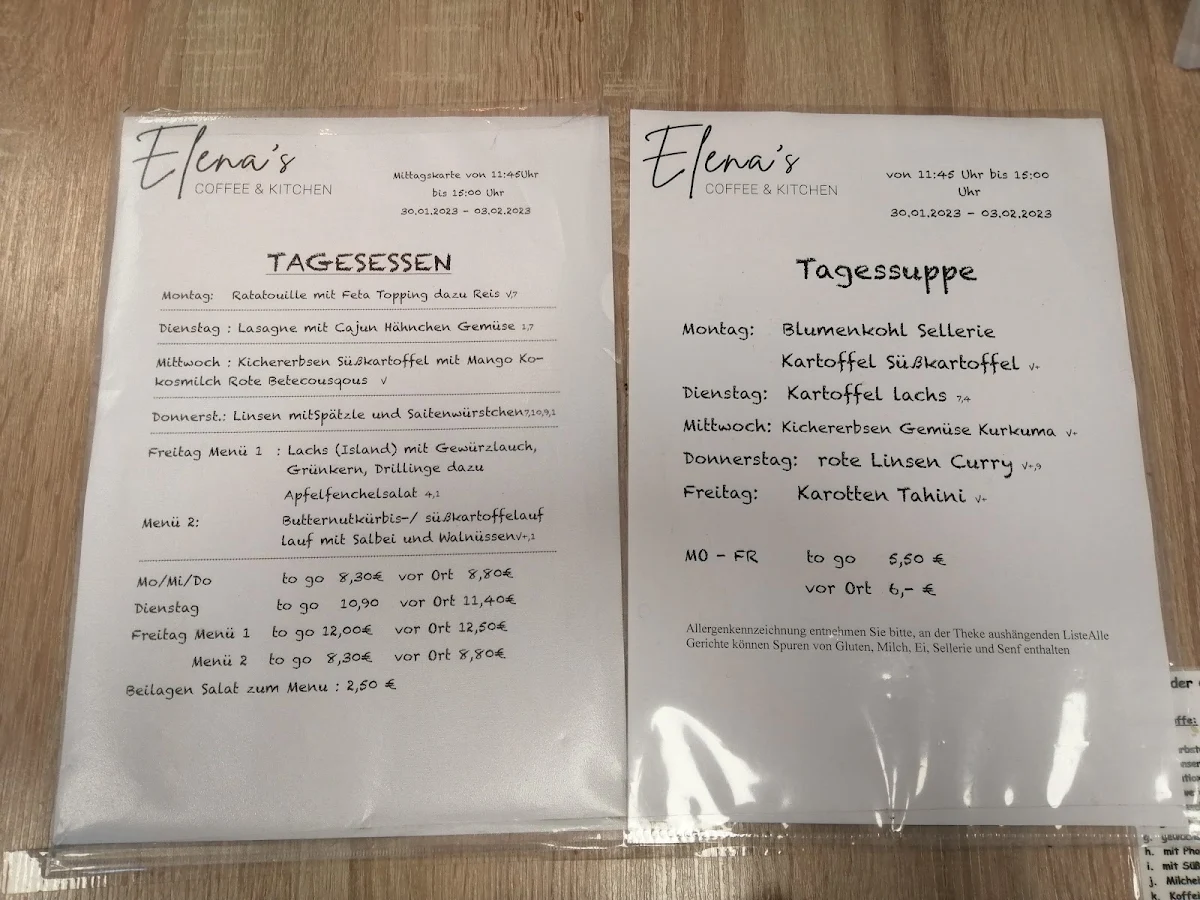 Elena's
COFFEE & KITCHEN
Mittagskarte von 11:45Uhr
bis 15:00 Uhr
30.01.2023 - 03.02.2023
TAGESESSEN
Montag: Ratatouille mit Feta Topping dazu Reis V,7
Dienstag : Lasagne mit Cajun Hähnchen Gemüse 1,7
Mittwoch : Kichererbsen Süßkartoffel mit Mango Ko-
kosmilch Rote Betecousqous V
Donnerst.: Linsen mitSpätzle und Saitenwürstchen7,10,9,1
Freitag Menü 1 : Lachs (Island) mit Gewürzlauch,
Grünkern, Drillinge dazu
Apfelfenchelsalat 4,1
Menü 2: Butternutkürbis-/ süßkartoffelauf
lauf mit Salbei und WalnüssenV+,1
Mo/Mi/Do to go 8,30€ vor Ort 8,80€
Dienstag to go 10,90 vor Ort 11,40€
Freitag Menü 1 to go 12,00€ vor Ort 12,50€
Menü 2 to go 8,30€ vor Ort 8,80€
Beilagen Salat zum Menu : 2,50 €
Elena's
COFFEE & KITCHEN
von 11:45 Uhr bis 15:00
Uhr
30.01.2023 - 03.02.2023
Tagessuppe
Montag: Blumenkohl Sellerie
Kartoffel Süßkartoffel V+
Dienstag: Kartoffel lachs 7,4
Mittwoch: Kichererbsen Gemüse Kurkuma V+
Donnerstag: rote Linsen Curry V+,9
Freitag: Karotten Tahini V+
MO - FR to go 5,50 €
vor Ort 6,- €
Allergenkennzeichnung entnehmen Sie bitte, an der Theke aushängenden ListeAlle
Gerichte können Spuren von Gluten, Milch, Ei, Sellerie und Senf enthalten
der
h. mit Pho
i. mit Süß
j. Milchei
k. Koffei